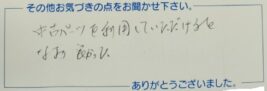 その他お気づきの点をお聞かせ下さい。
中古パーツを利用していただけると
なお良かった
ありがとうございました。